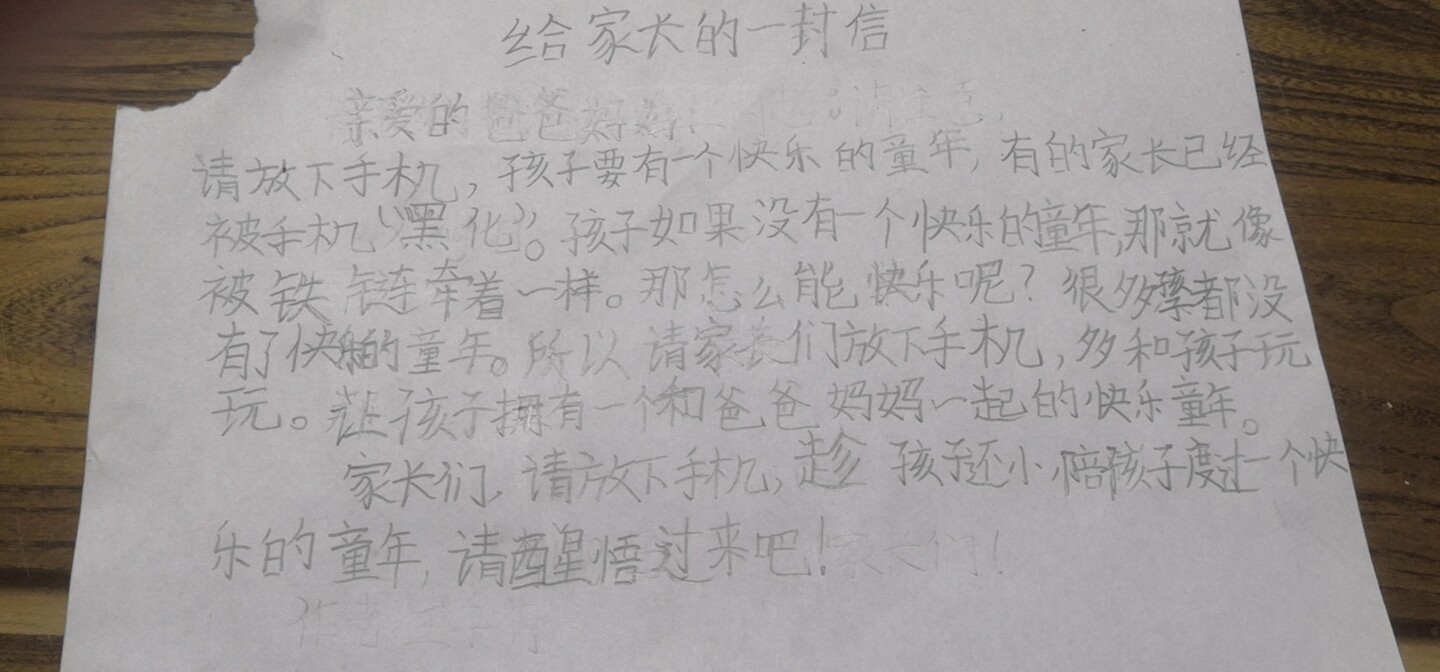 给家长的一封信
亲爱的爸爸妈妈
请放下手机，孩子要有一个快乐的童年，有的家长已经
被手机“黑化”。孩子如果没有一个快乐的童年，那就像
被铁链牵着一样。那怎么能快乐呢？很多孩都没
有了快乐的童年。所以请家长们放下手机，多和孩子玩
玩。让孩子拥有一个和爸爸妈妈一起的快乐童年。
家长们，请放下手机，趁孩子还小，陪孩子度过一个快
乐的童年，请醒悟过来吧！家长们！
作者